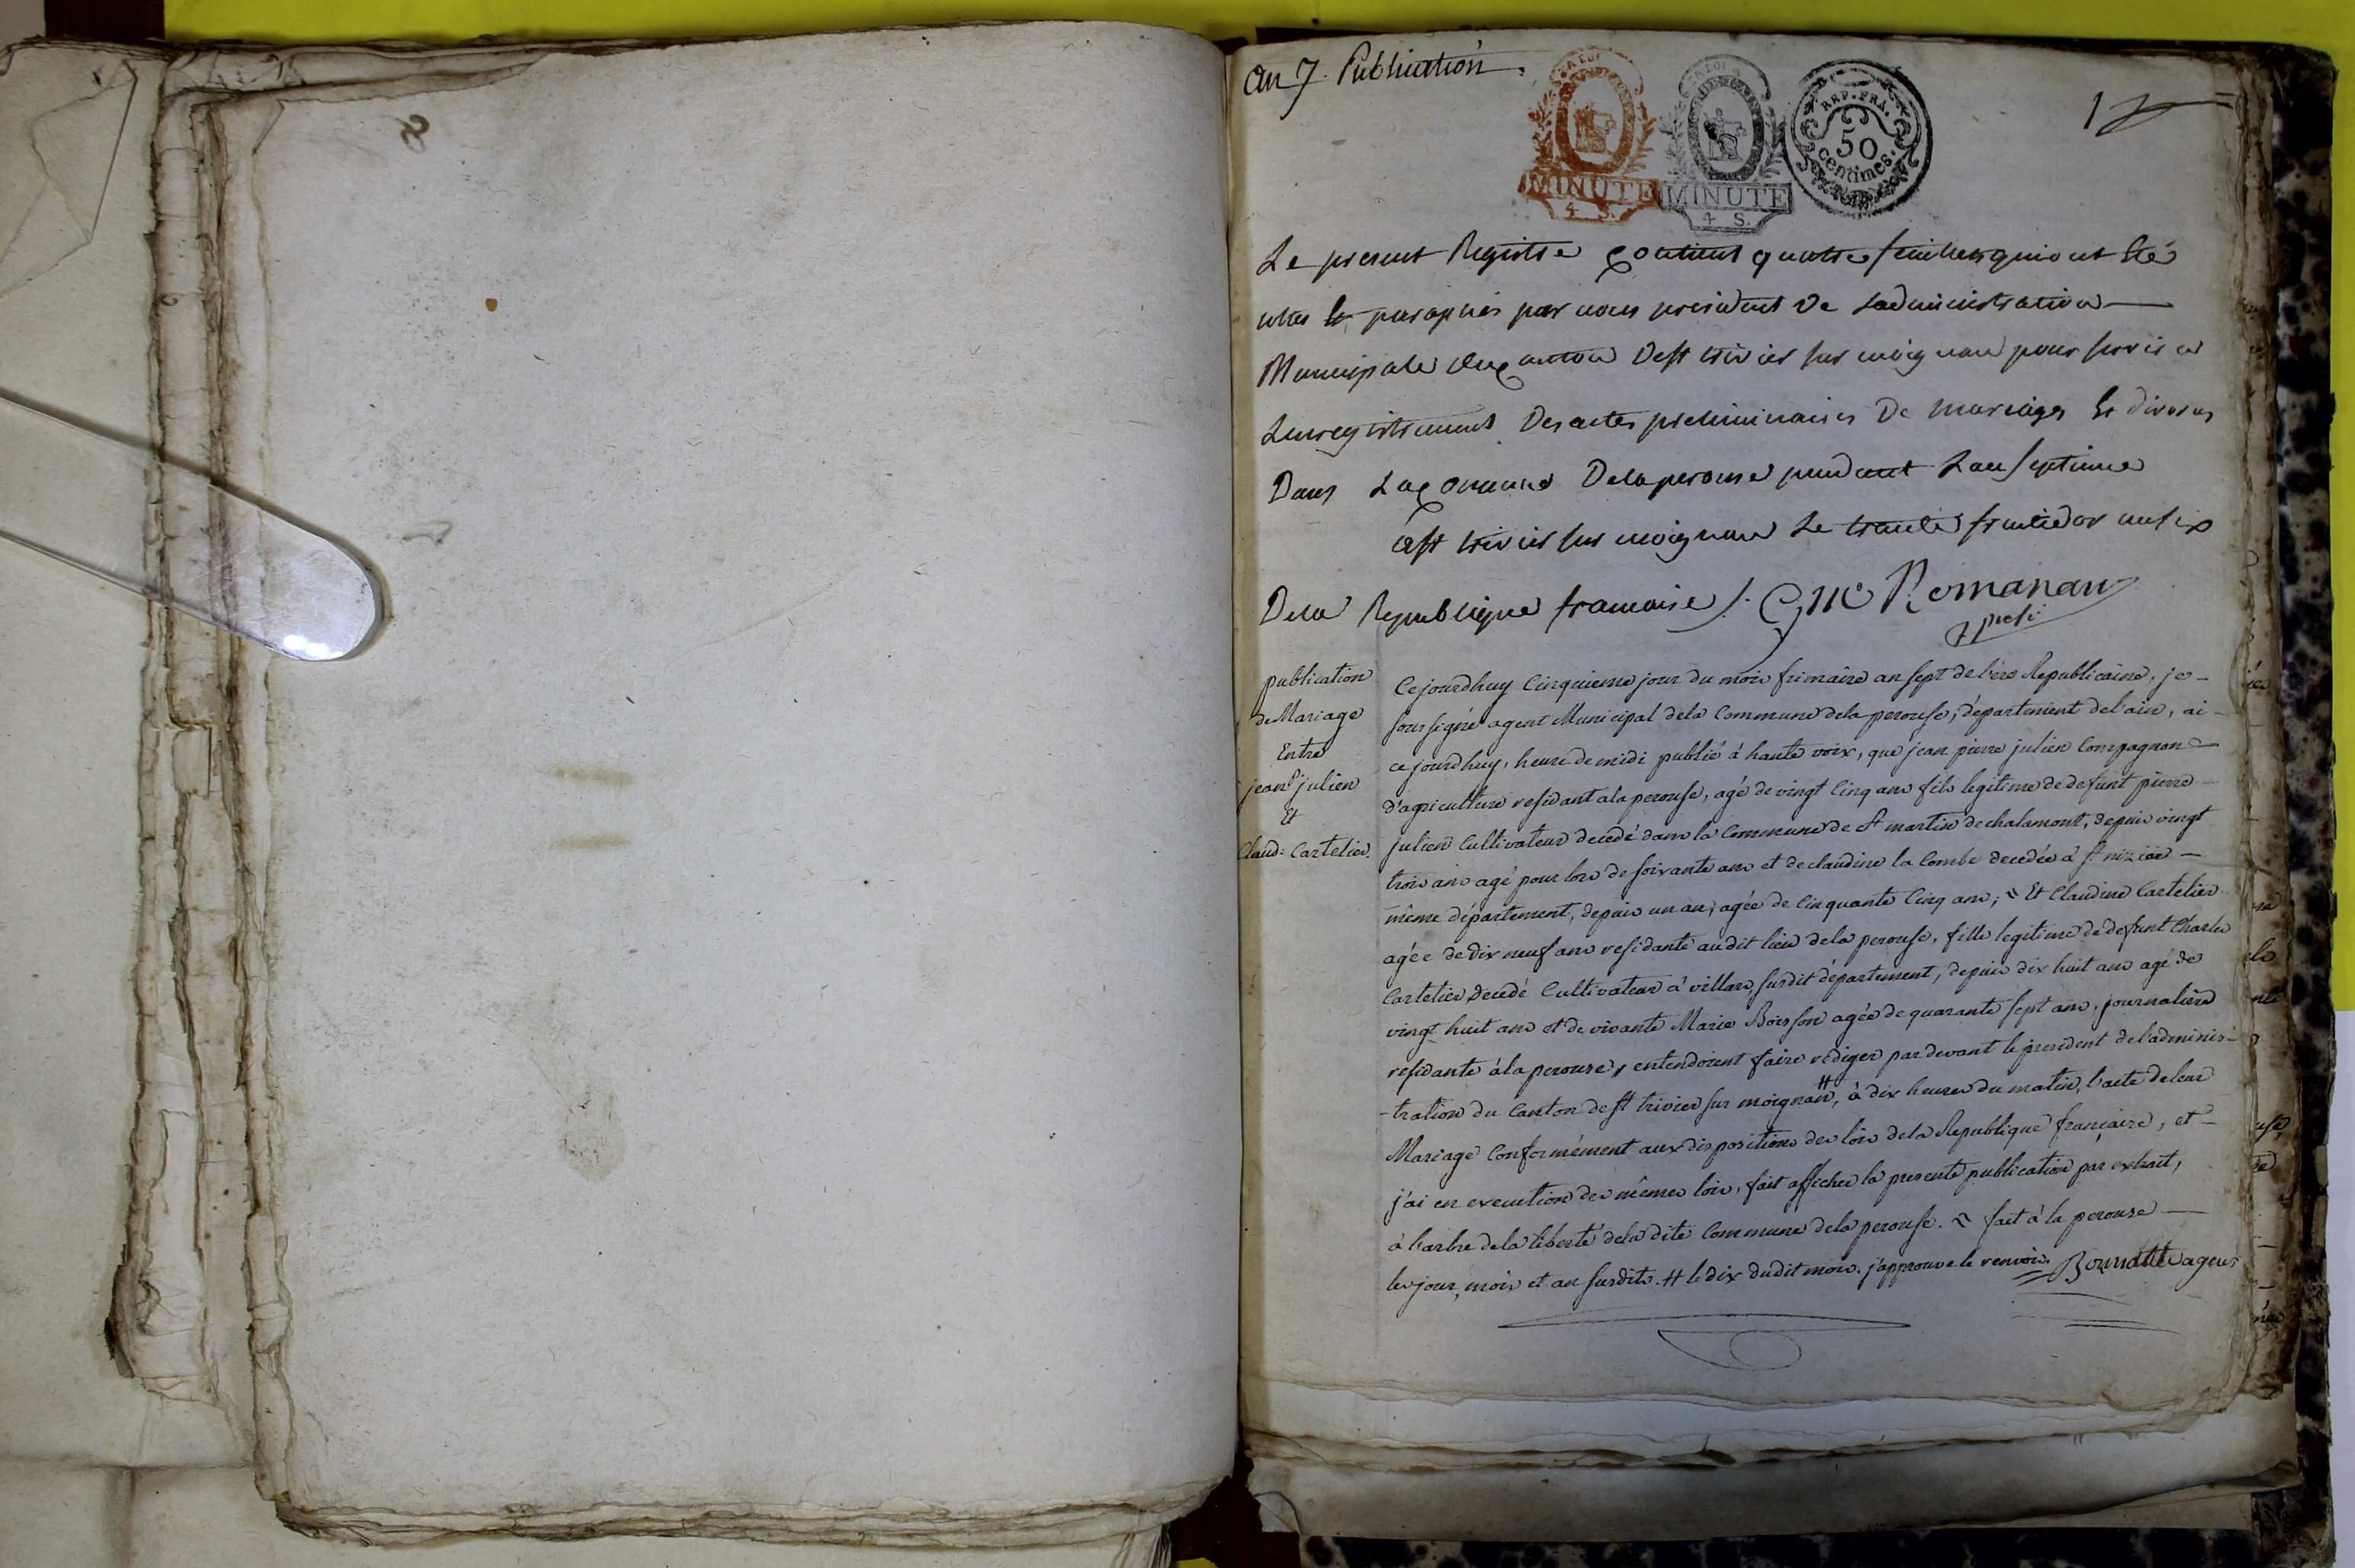 an 7. Publication.
A LOI
A LOI
MINUTE
4 S.
MINUTE
4 S.
REP. FRA.
50
centimes.
1
Le present Registre Contient quatre feuilles qui ont été
cottés et paraphés par nous president de Ladministration
Municipale du Canton de st trivier sur moignans pour servir a
Lenregistrement des actes preliminaires de mariages et divorces
Dans La Commune Delaperouse pendant Lan septieme
a st trivier sur moignans Le trente fructidor an six
Dela Republique francaise /. Romanans
presi
publication
de Mariage
Entre
jean P julien
Et
Claud: Cartelier.
Cejourdhuy Cinquieme jour du mois frimaire an sept de l'ere Republicaine, je
soussigné agent Municipal dela Commune dela perouse, département del'ain, ai
cejourdhuy, heure de midi publié à haute voix, que jean pierre julien Compagnon
d'agriculture residant ala perouse, agé de vingt Cinq ans fils legitime de defunt pierre
julien Cultivateur decedé dans la Commune de St martin de chalamont, depuis vingt
trois ans agé pour lors de soixante ans et de claudine la Combe decedée à St nizier
même département, depuis un an, agée de Cinquante Cinq ans; Et Claudine Cartelier
agée de dix neuf ans residante audit lieu dela perouse, fille legitime de defunt Charles
Cartelier decedé Cultivateur à villars, susdit département, depuis dix huit ans agé de
vingt huit ans et de vivante Marie Boisson agée de quarante sept ans, journaliere
residante àla perouse, entendoient faire rediger par devant le president de l'adminis-
-tration du Canton de st trivier sur moignans #, à dix heures du matin, l'acte deleur
Mariage Conformément aux dispositions des lois dela Republique française, et
j'ai en execution des mêmes lois, fait afficher la presente publication par extrait,
à l'arbre dela liberté dela dite Commune dela perouse. fait à la perouse
les jour, mois et an susdits. # le dix dudit mois. j'approuve le renvoi. agent